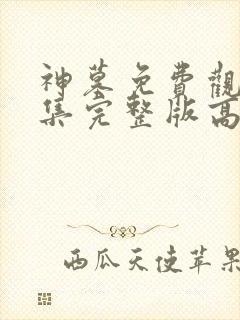 神墓免費觀
集完整版高
西瓜天使苹果